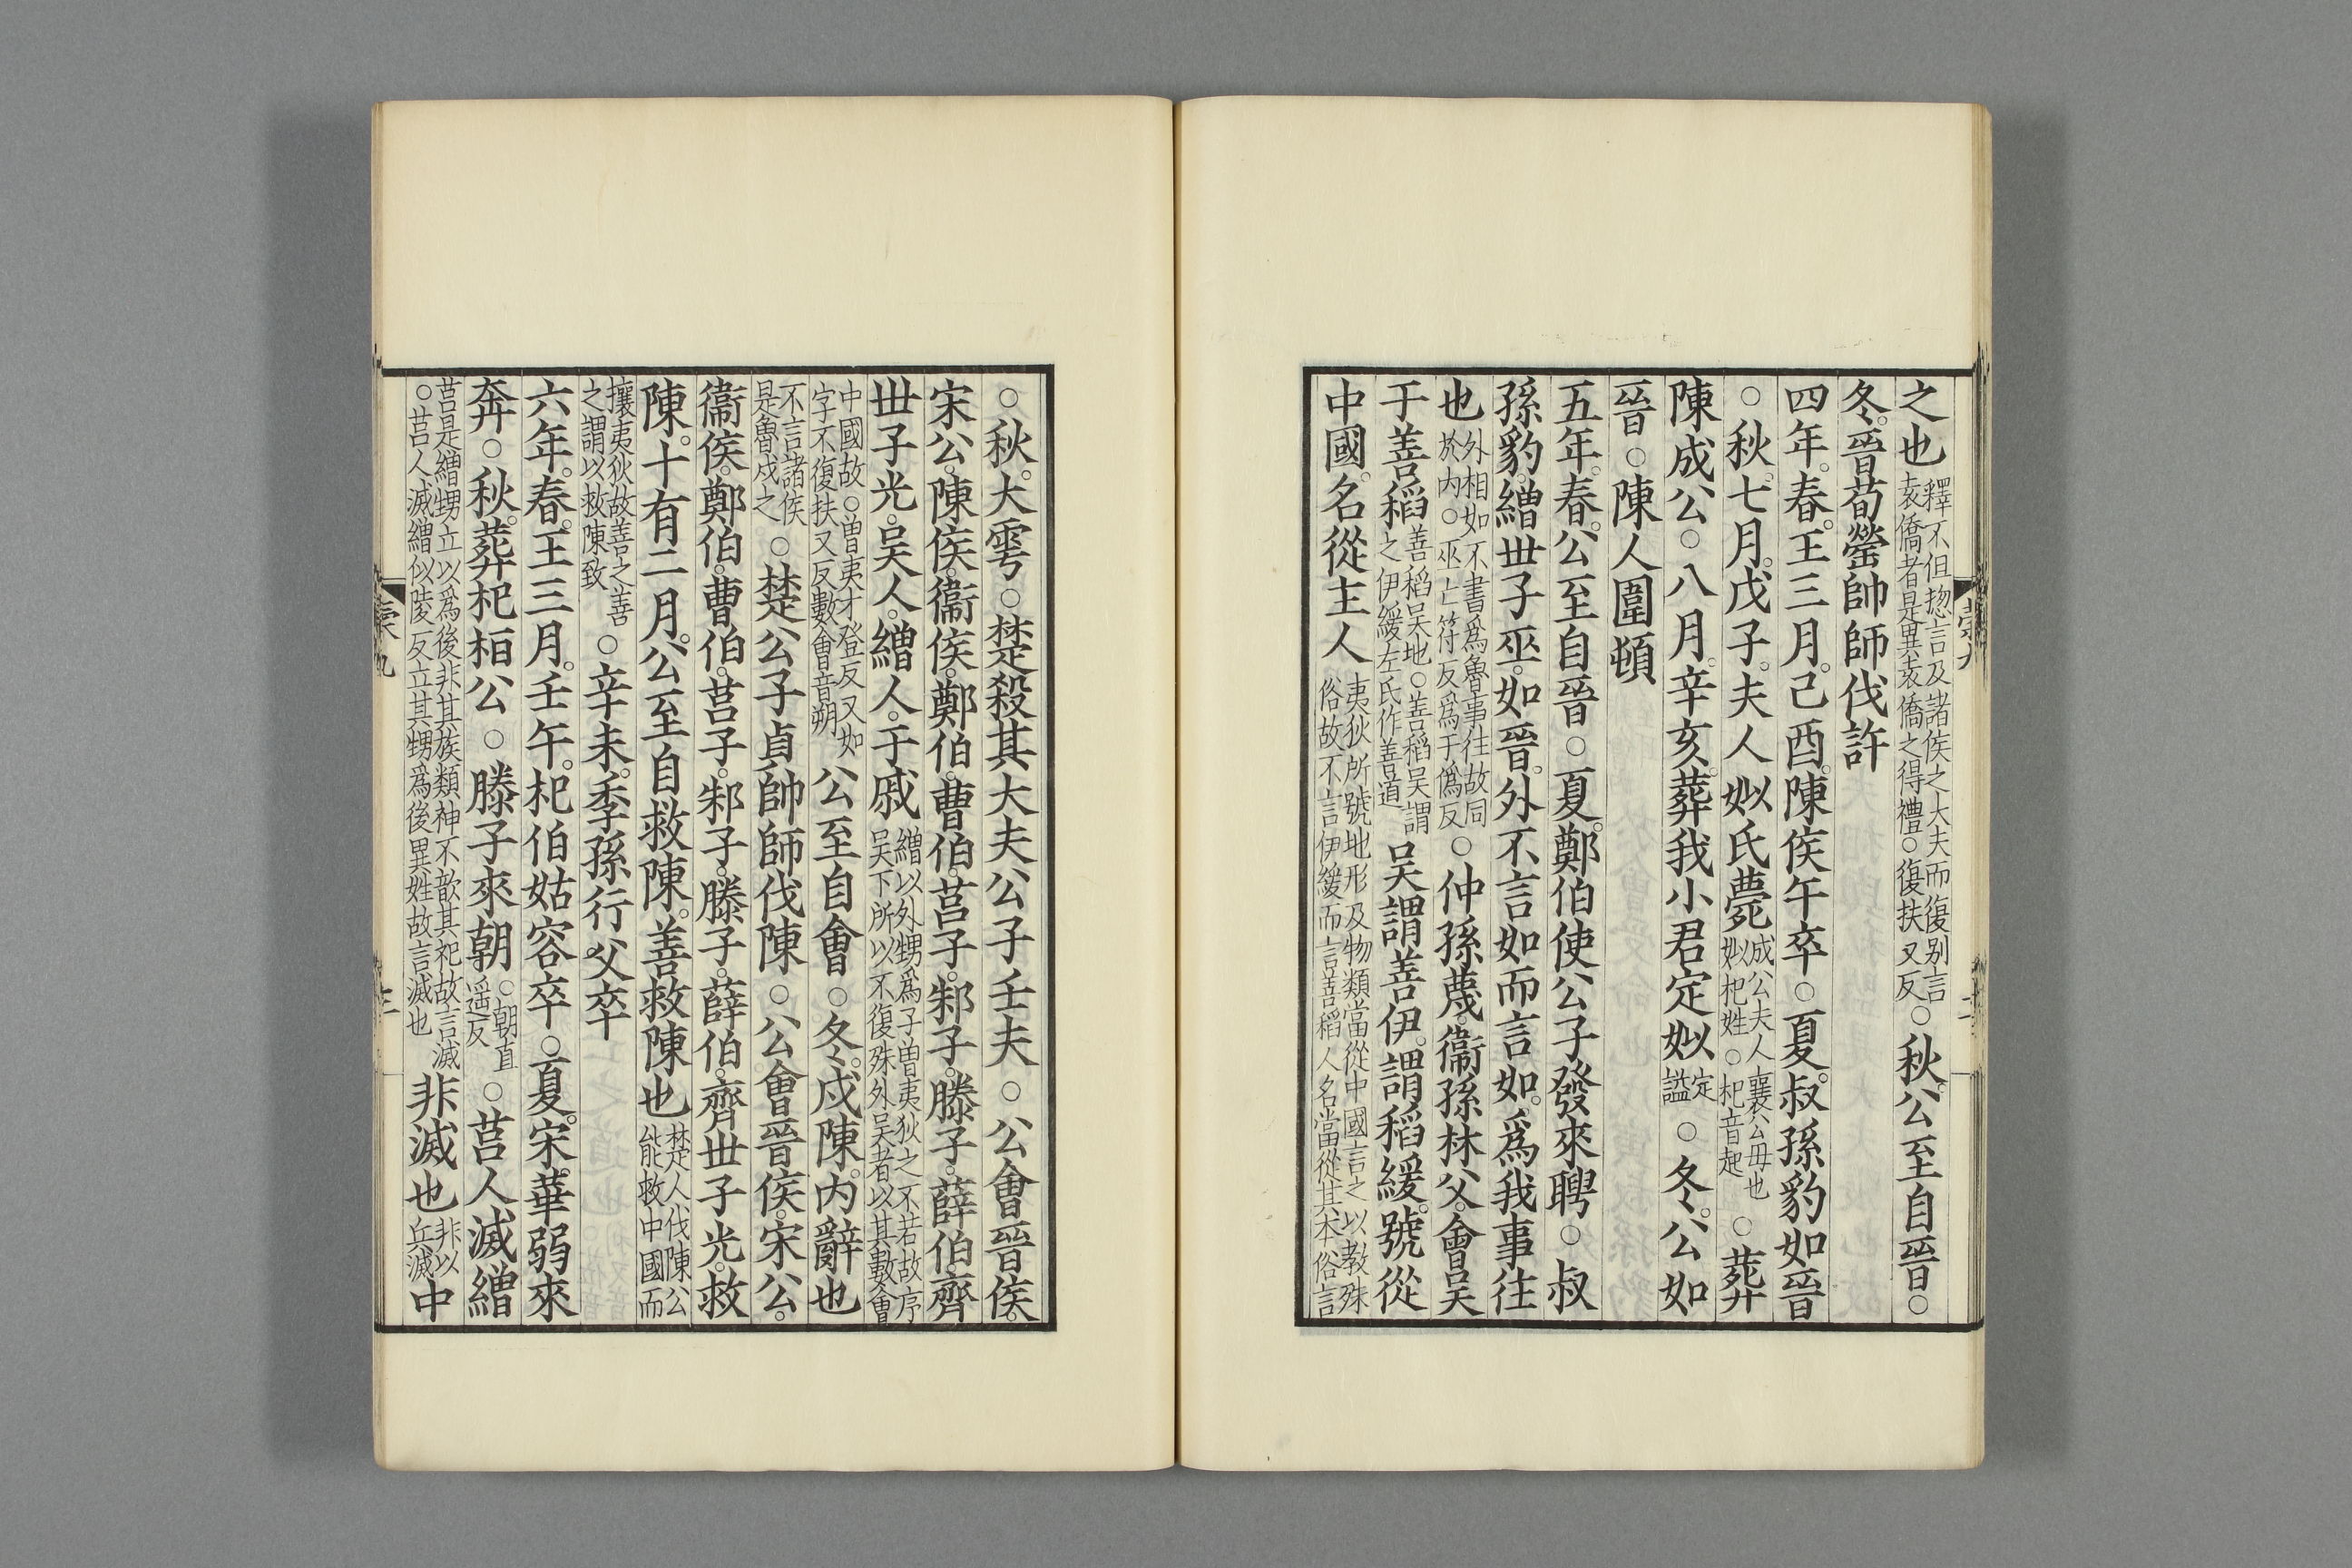 之也釋不但揔言及諸侯之大夫而復别言袁僑者是異袁僑之得禮○復扶又反○秋公至自晉○
冬晉荀罃帥師伐許
四年春王三月己酉陳侯午卒○夏叔孫豹如晉
○秋七月戊子夫人姒氏薨成公夫人襄公毋也姒杞姓○杞音起○葬
陳成公○八月辛亥葬我小君定姒定謚○冬公如
晉○陳人圍頓
五年春公至自晉○夏鄭伯使公子發來聘○叔
孫豹繒世子巫如晉外不言如而言如爲我事往
也外相如不書爲魯事往故同於内○巫亡符反爲于僞反○仲孫蔑衞孫林父會吴
于善稻善稻吴地○善稻吴謂之伊緩左氏作善道吴謂善伊謂稻緩號從
中國名從主人夷狄所號地形及物類當從中國言之以教殊俗故不言伊緩而言善稻人名當從其本俗言
○秋大雩○楚殺其大夫公子壬夫○公會晉侯
宋公陳侯衞侯鄭伯曹伯莒子邾子滕子薛伯齊
世子光吴人繒人于戚繒以外甥爲子曽夷狄之不若故序吴下所以不復殊外吴者以其數會
中國故○曽夷才登反又如字不復扶又反數會音朔公至自會○冬戍陳内辭也
不言諸侯是魯戍之○楚公子貞帥師伐陳○公會晉侯宋公
衞侯鄭伯曹伯莒子邾子滕子薛伯齊世子光救
陳十有二月公至自救陳善救陳也楚人伐陳公能救中國而
攘夷狄故善之善之謂以救陳致○辛未季孫行父卒
六年春王三月壬午杞伯姑容卒○夏宋華弱來
奔○秋葬杞桓公○滕子來朝○朝直遥反○莒人滅繒
莒是繒甥立以爲後非其族類神不歆其祀故言滅○莒人滅繒似陵反立其甥爲後異姓故言滅也非滅也非以兵滅中